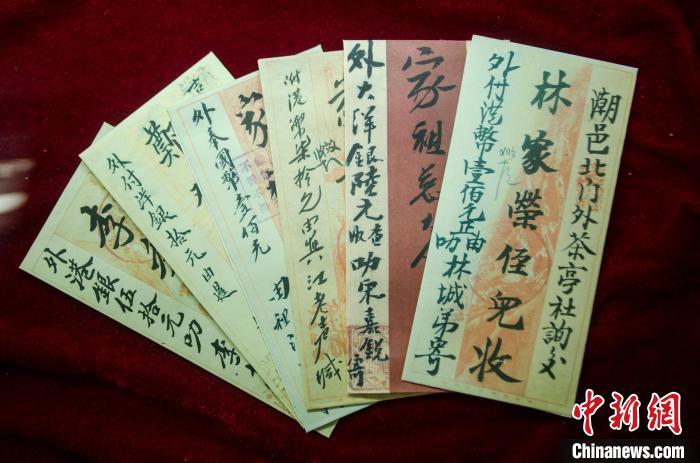 潮邑北门外茶亭社詢交
林家榮侄兒收
外付港幣壹佰元正由叻林城弟寄
家祖慈
外大洋銀陸元查收叻宋嘉銳寄
附港幣柒拾元由
外奉國幣壹佰元
鄭
外付洋銀拾元由暹
李
外港銀伍拾元叻李
中新网
Chinanews.com